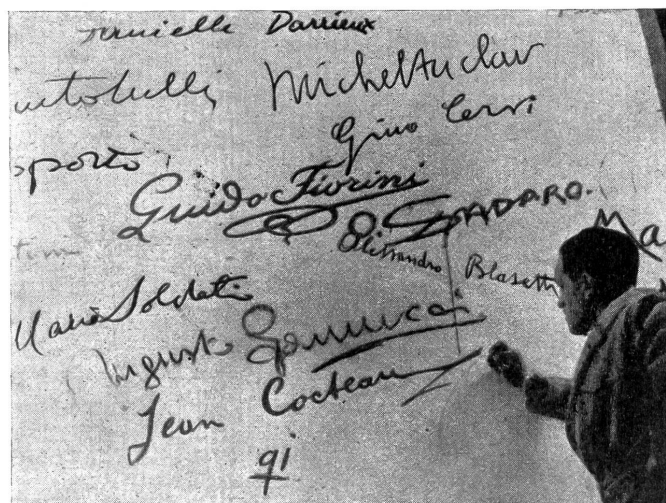 Danielle Darrieux
Michel Auclair
Gino Cervi
Guido Fiorini
O. SPADARO.
Ma
Alessandro Blasetti
Mario Soldati
Augusto
Jean Cocteau